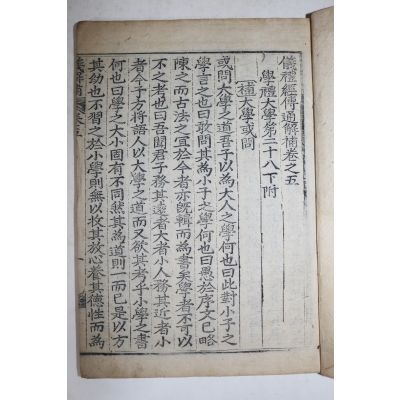 儀禮經傳通解補卷之五
學禮大學第二十八下附
禮大學或問
或問大學之道吾子以為大人之學何也曰此對小子之
學言之也曰敢問其為小子之學何也曰愚於序文已略
陳之而古法之宜於今者亦旣輯而為書矣學者不可以
不之考也曰吾聞君子務其遠者大者小人務其近者小
者今子方將語人以大學之道而又欲其考乎小學之書
何也曰學之大小固有不同然其為道則一而已是以方
其幼也不習之於小學則無以收其放心養其德性而為